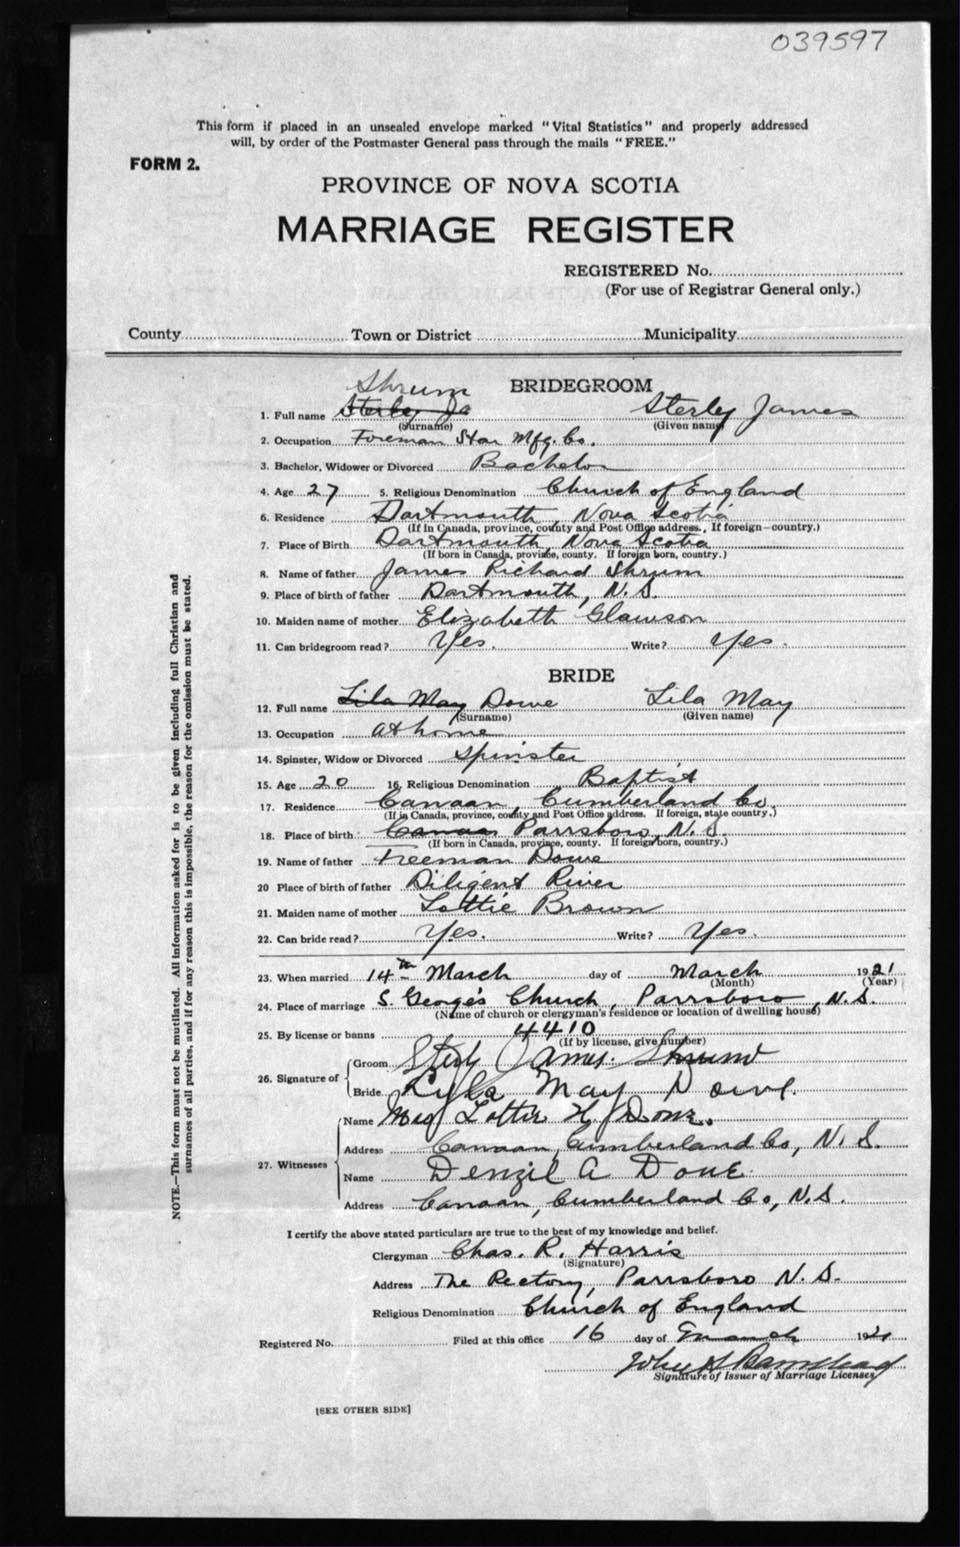 039597
This form if placed in an unsealed envelope marked "Vital Statistics" and properly addressed
will, by order of the Postmaster General pass through the mails "FREE."
FORM 2.
PROVINCE OF NOVA SCOTIA
MARRIAGE REGISTER
REGISTERED No.
(For use of Registrar General only.)
County Town or District Municipality
BRIDEGROOM
Shrum
1. Full name Sterley Ja Sterley James
(Surname) (Given name)
2. Occupation Foreman Star Mfg. Co.
3. Bachelor, Widower or Divorced Bachelor
4. Age 27 5. Religious Denomination Church of England
6. Residence Dartmouth Nova Scotia
(If in Canada, province, county and Post Office address. If foreign—country.)
7. Place of Birth Dartmouth, Nova Scotia
(If born in Canada, province, county. If foreign born, country.)
8. Name of father James Richard Shrum
9. Place of birth of father Dartmouth, N.S.
10. Maiden name of mother Elizabeth Glawson
11. Can bridegroom read? Yes. Write? Yes.
BRIDE
12. Full name Lila May Dowe Lila May
(Surname) (Given name)
13. Occupation at home
14. Spinster, Widow or Divorced Spinster
15. Age 20 16. Religious Denomination Baptist
17. Residence Canaan, Cumberland Co.
(If in Canada, province, county and Post Office address. If foreign, state country.)
18. Place of birth Canaan Parrsboro, N.S.
(If born in Canada, province, county. If foreign born, country.)
19. Name of father Freeman Dowe
20 Place of birth of father Diligent River
21. Maiden name of mother Lottie Brown
22. Can bride read? Yes. Write? Yes.
23. When married 14th March day of March 1921
(Month) (Year)
24. Place of marriage S. George's Church, Parrsboro, N.S.
(Name of church or clergyman's residence or location of dwelling house)
25. By license or banns 4410
(If by license, give number)
26. Signature of
Groom James Shrum
Bride Lyla May Dowe.
27. Witnesses
Name Lottie H.
Address Canaan, Cumberland Co, N.S.
Name Denzil A Dowe
Address Canaan, Cumberland Co, N.S.
I certify the above stated particulars are true to the best of my knowledge and belief.
Clergyman Chas. R. Harris
(Signature)
Address The Rectory, Parrsboro N.S.
Religious Denomination Church of England
Registered No. Filed at this office 16 day of March 1921
Signature of Issuer of Marriage Licenses
[SEE OTHER SIDE]
NOTE.—This form must not be mutilated. All information asked for is to be given including full Christian and
surnames of all parties, and if for any reason this is impossible, the reason for the omission must be stated.